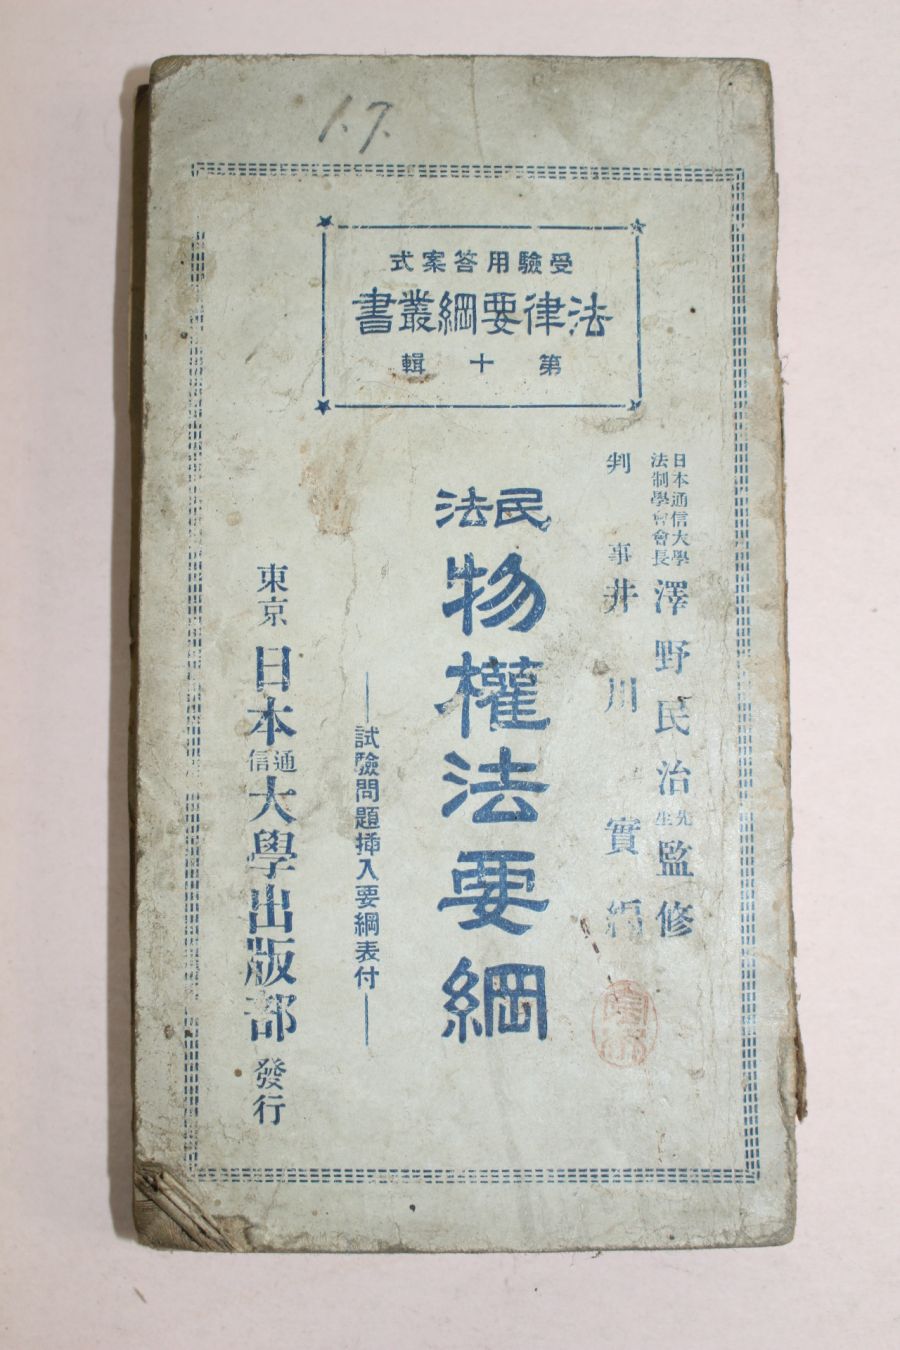 1.7.
受驗用答案式
法律要綱叢書
第十輯
日本通信大學
法制學會會長
澤野民治先生監修
判事井川實編
民法
物權法要綱
試驗問題揷入要綱表付
東京日本通信大學出版部發行